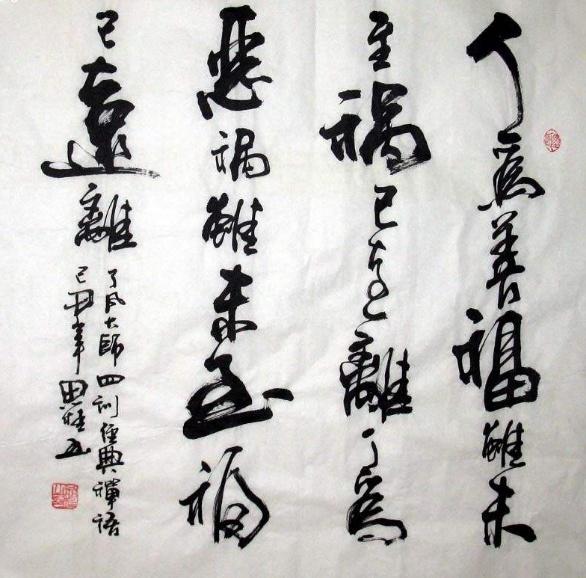 人為善福雖未
至禍已遠離人為
惡禍雖未至福
已遠離
了凡大師四训经典禪語
己丑年